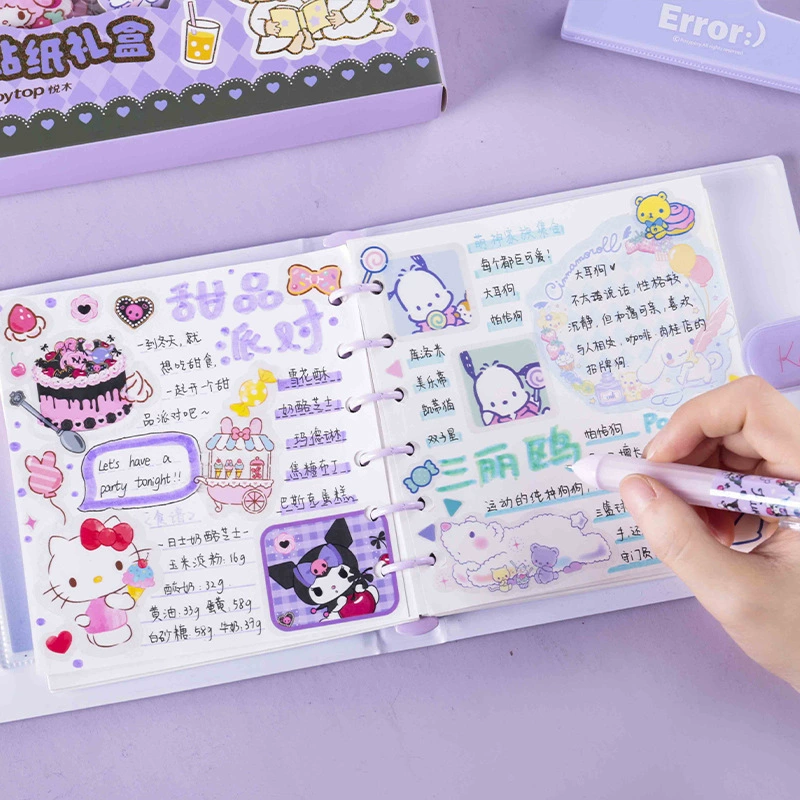 贴纸礼盒
ytop 悦木
Error:)
甜品
派对
一到冬天,就
想吃甜食,
一起开个甜
品派对吧~
雪花酥
奶酪芝士
玛德琳
焦糖布丁
巴斯克蛋糕
Let's have a
party tonight!!
<食谱>
-日式奶酪芝士-
玉米淀粉:16g
酸奶:32g
黄油:33g 蛋黄:58g
白砂糖:58g 牛奶:39g
每个都巨可爱!
大耳狗
帕恰狗
库洛米
美乐蒂
凯蒂猫
双子星
三丽鸥
Cinnamoroll
大耳狗♥
不太爱说话,性格较
沉静,但和蔼可亲,喜欢
与人相处,咖啡,肉桂店的
招牌狗
帕恰狗
Po
擅长
运动的纯种狗狗,
手,还
守门员
K